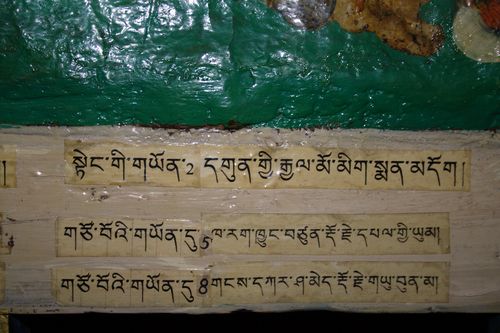 །
སྟེང་གི་གཡོན་2 དགུན་གྱི་རྒྱལ་མོ་མིག་སྨན་མདོག།
གཙོ་བོའི་གཡོན་དུ་5 ཁ་རག་ཁྱུང་བཙུན་རྡོ་རྗེ་དཔལ་གྱི་ཡུམ།
གཙོ་བོའི་གཡོན་དུ་8 གངས་དཀར་ཤ་མེད་རྡོ་རྗེ་གཡུ་བུན་མ།